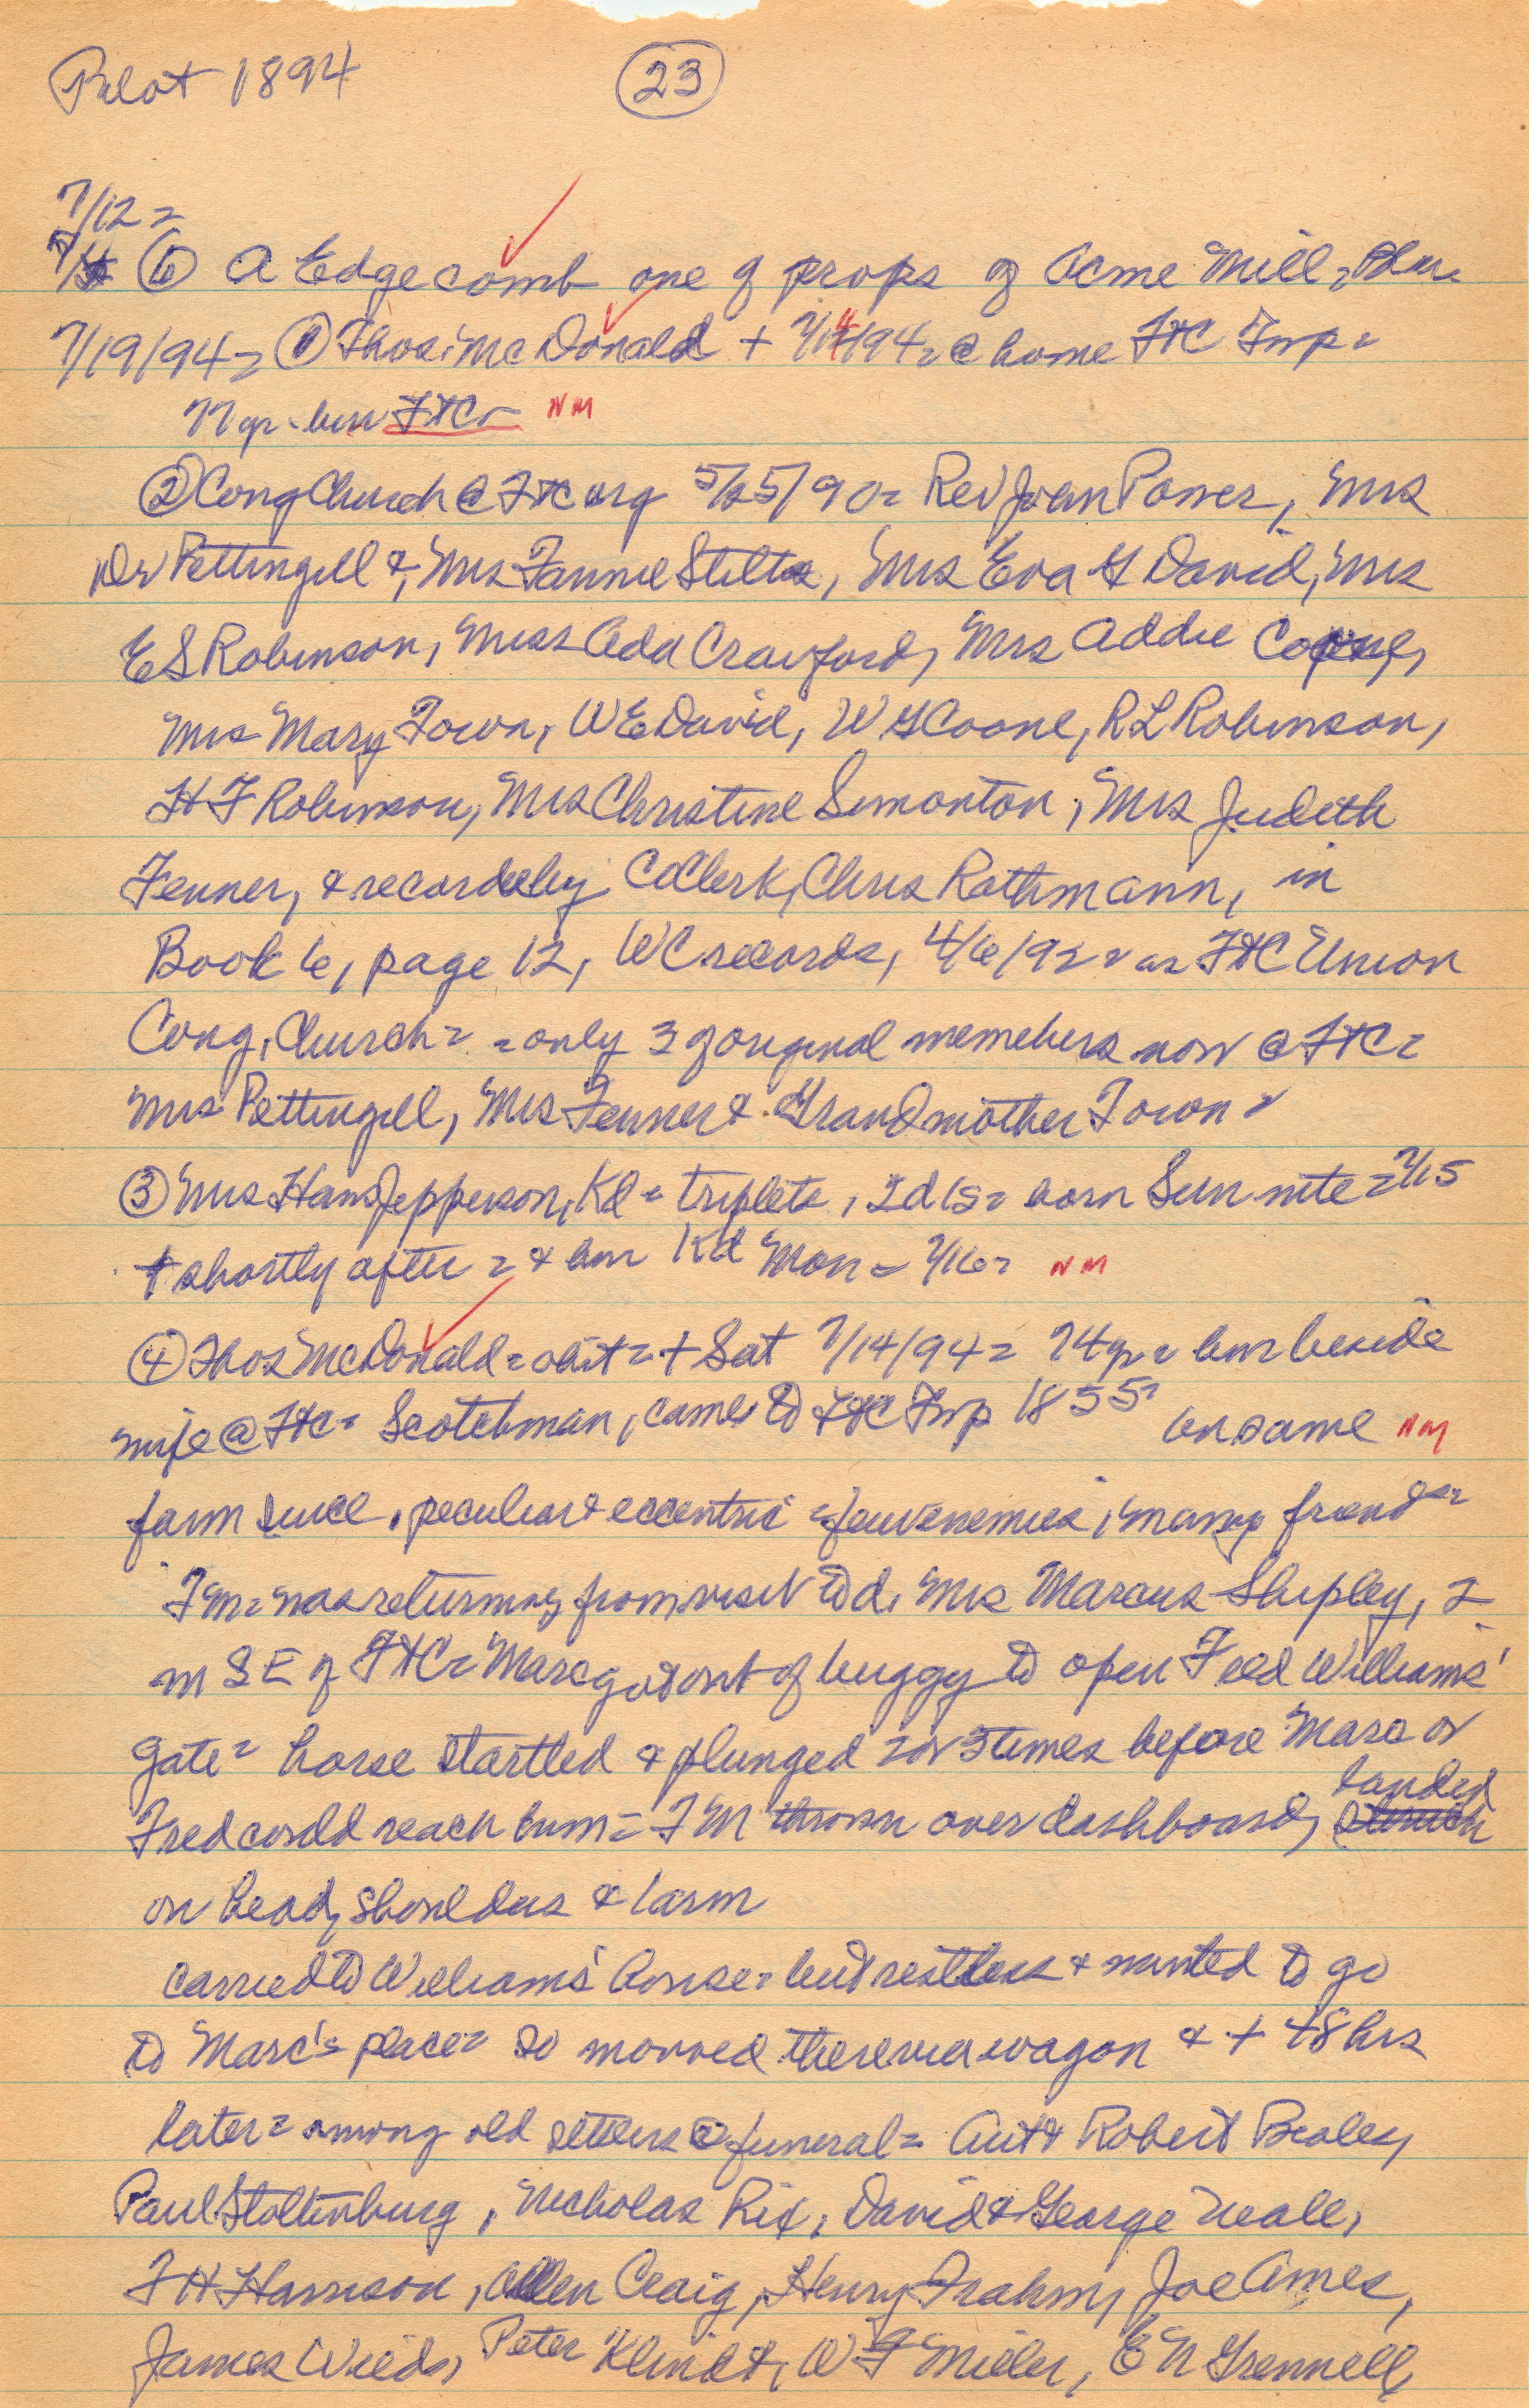 Pilot 1894
23
7/12 =
⑥ A Edgecomb one of props of Acme Mill,
7/19/94 = ① Thos. McDonald + 7/14/94 = @ home FtC Twp =
77 yr - bur FtC NM
② Cong Church @ FtC org 5/25/90 = Rev Joan Power, Mrs
Dr Pettingill &, Mrs Fannie Stiltz, Mrs Eva G David, Mrs
E S Robinson, Miss Ada Crawford, Mrs Addie
Mrs Mary Town, W E David, W G Coone, R L Robinson,
H F Robinson, Mrs Christine Simonton, Mrs Judith
Fenner, & recorded by CoClerk, Chris Rathmann, in
Book 6, page 12, WC records, 4/6/92 = as FtC Union
Cong. Church = = only 3 of original memebers now @ FtC =
Mrs Pettingill, Mrs Fenner & Grandmother Town =
③ Mrs Hans Jepperson, Kd = triplets, 2d 1s = born Sun nite = 7/15
+ shortly after = & bur Kd Mon = 7/16 = NM
④ Thos McDonald = obit = + Sat 7/14/94 = 74 yr = bur beside
wife @ FtC = Scotchman, came to FtC Twp 1855 = on same NM
farm since, peculiar & eccentric = few enemies, many friends =
TM = was returning from visit to d, Mrs Marcus Shipley, 2
m SE of FtC = Marc got out of buggy to open Fred Williams'
gate = horse startled & plunged 2 or 3 times before Marc or
Fred could reach him = TM thrown over dashboard, landed
on head, shoulders & 1 arm
carried to Williams' house = but restless & wanted to go
to Marc's place = so moved there via wagon & + 48 hrs
later = among old settlers @ funeral = Robert Bealey
Paul Stoltenburg, Nicholas Rix, David & George Neale,
T H Harrison, Allen Craig, Henry Frahm, Joe Ames,
James Wieds, Peter Klindt, W F Miller, E N Grennell,